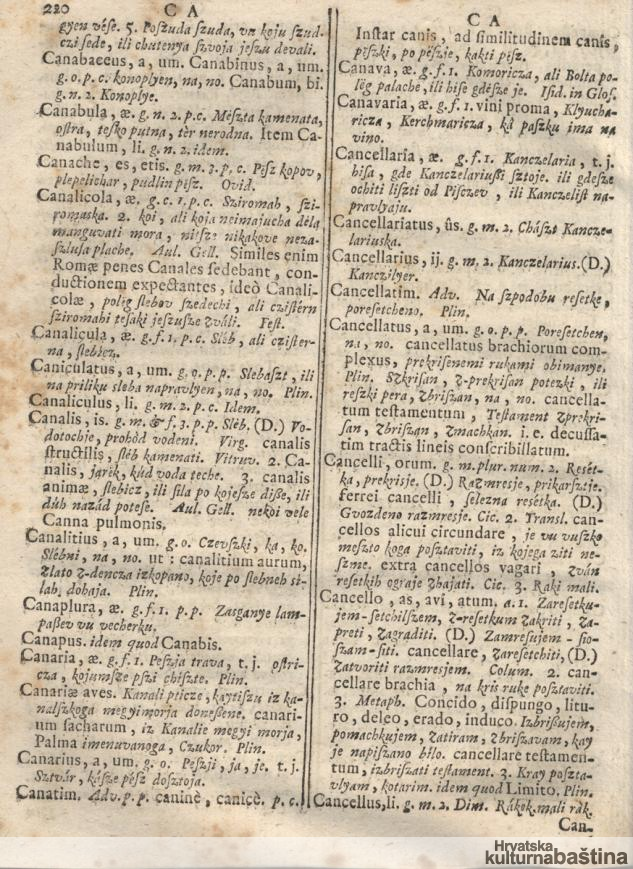 220 C A
gyen vése. 5. Poszuda szuda, vu koju szud-
czi sede, ili chutenya szvoja jeszu devali.
Canabaceus, a, um. Canabinus, a, um.
g. o. p. c. konoplyen, na, no. Canabum, bi.
g. n. 2. Konoplye.
Canabula, æ. g. n. 2. p. c. Mészta kamenata,
osztra, tesko putna, tèr nerodna. Item Ca-
nabulum, li. g. n. 2. idem.
Canache, es, etis. g. m. 3. p. c. Pesz kopov,
plepelichar, pudlin pész. Ovid.
Canalicola, æ, g. c. 1. p. c. Sziromah, szi-
romaska. 2. koi, ali koja neimajucha déla
manguvati mora, nisze nikakove neza-
szlusa plache. Aul. Gell. Similes enim
Romæ penes Canales sedebant, con-
ductionem expectantes, ideò Canali-
colæ, poleg slebov szedechi, ali czistérn
sziromahi tesaki jeszusze zváli. Fest.
Canalicula, æ. g. f. 1. p. c. Sléb, ali czister-
na, slebicz.
Caniculatus, a, um. g. o. p. p. Slebaszt, ili
na priliku sleba napravlyen, na, no. Plin.
Canaliculus, li. g. m. 2. p. c. Idem.
Canalis, is. g. m. & f. 3. p. p. Sléb. (D.) Vo-
dotochje, prohòd vodeni. Virg. canalis
structilis, sléb kamenati. Vitruv. 2. Ca-
nalis, jarék, kúd voda teche. 3. canalis
animæ, slebicz, ili sila po kojesze diše, ili
dúh nazád potese. Aul. Gell. nekoi vele
Canna pulmonis.
Canalitius, a, um. g. o. Czevszki, ka, ko.
Slébni, na, no. ut: canalitium aurum,
zlato z-dencza izkopano, koje po slebneh si-
lah, dohaja. Plin.
Canaplura, æ. g. f. 1. p. p. Zasganye lam-
pašev vu vecherku.
Canapus. idem quod Canabis.
Canaria, æ. g. f. 1. Peszja trava, t. j. ostri-
cza, kojumsze pszi chiszte. Plin.
Canariæ aves. Kanali pticze, kaytiszu iz ka-
nalszkoga megyimorja donešene. canari-
um sacharum, iz Kanalie megyi morja,
Palma imenuvanoga, Czukor. Plin.
Canarius, a, um. g. o. Peszji, ja, je. t. j.
Sztvár, kásze pész dosztoja.
Canatim. Adv. p. p. caninè, canicè. p. c.
C A
Instar canis, ad similitudinem canis,
peszki, po pészje, kakti pész.
Canava, æ. g. f. 1. Komoricza, ali Bolta po-
lég palache, ili hise gdésze je. Isid. in Glos.
Canavaria, æ. g. f. 1. vini proma, Klyucha-
ricza, Kerchmaricza, ká paszku ima na
vino.
Cancellaria, æ. g. f. 1. Kanczelaria, t. j.
hisa, gde Kanczelariuši sztoje. ili gdesze
ochiti liszti od Piszcev, ili Kanczelist na-
pravlyaju.
Cancellariatus, ûs. g. m. 2. Chászt Kancze-
lariuska.
Cancellarius, ij. g. m. 2. Kanczelarius. (D.)
Kanczilyer.
Cancellatim. Adv. Na szpodobu resetke,
poresetcheno. Plin.
Cancellatus, a, um. g. o. p. p. Poresetchen,
na, no. cancellatus brachiorum com-
plexus, prekrisenemi rukami obimanye.
Plin. Szkrisan, z-prekrisan potezki, ili
reszki pera, zbriszan, na, no. cancella-
tum testamentum, Testament zprekri-
san, zbriszan, zmachkan. i. e. decussa-
tim tractis lineis conscribillatum.
Cancelli, orum. g. m. plur. num. 2. Resét-
ka, prekrisje. (D.) Razmresje, prikarsztje.
ferrei cancelli, selezna resétka. (D.)
Gvozdeno razmresje. Cic. 2. Transl. can-
cellos alicui circundare, je vu vuszko
meszto koga posztaviti, iz kojega ziti ne-
szme. extra cancellos vagari, zván
resetkih ograje zhajati. Cic. 3. Raki mali.
Cancello, as, avi, atum. a. 1. Zaresetku-
jem-setchilszem, z-resetkum zakriti, za-
preti, zagraditi. (D.) Zamresujem-sio-
szam-siti. cancellare, zaresetchiti, (D.)
zatvoriti razmresjem. Colum. 2. can-
cellare brachia, na kris ruke posztaviti.
3. Metaph. Concido, dispungo, litu-
ro, deleo, erado, induco. Izbrišujem,
pomachkujem, zatiram, zbriszavam, kay
je napiszano bilo. cancellare testamen-
tum, izbriszati testament. 3. Kray poszta-
vlyam, kotarim. idem quod Limito. Plin.
Cancellus, li. g. m. 2. Dim. Rákok, mali rák.
Can-
Hrvatska
kulturnabaština